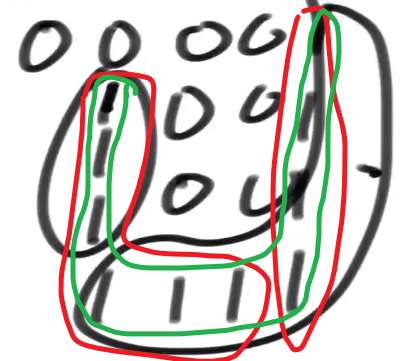 0 0 0 0 1
1 0 0 1
1 0 0 1
1 1 1 1